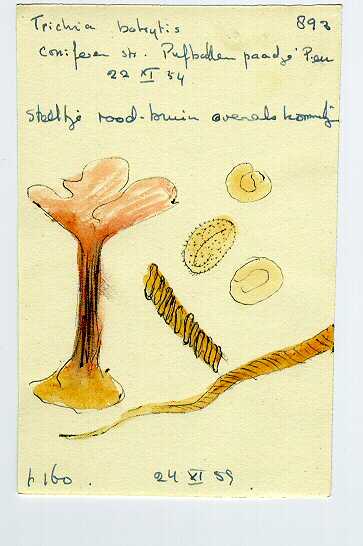 Trichia botrytis 893
Coniferen str. Pufballen paadje Pen
22 XI 54
Steeltje rood-bruin evenals kommetje
p 160.
24 XI 59